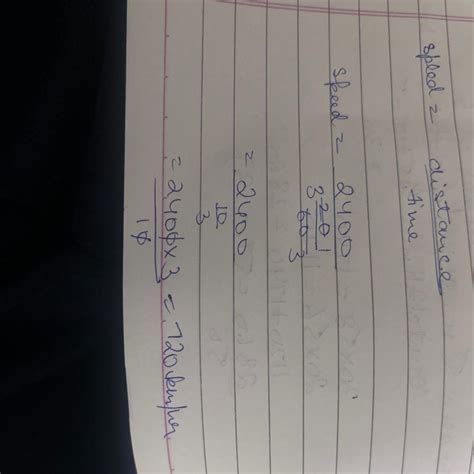 speed = distance
time
speed = 2400
3 20 1
60 3
= 2400
10
3
= 2400 x 3 = 720 km/hr
10